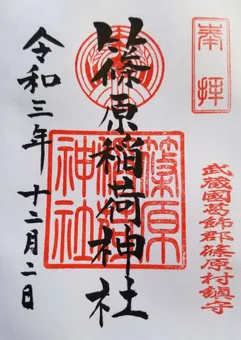 奉拝
武蔵國葛飾郡篠原村鎮守
篠原稲荷神社
篠原
神社
令和三年 十二月二日